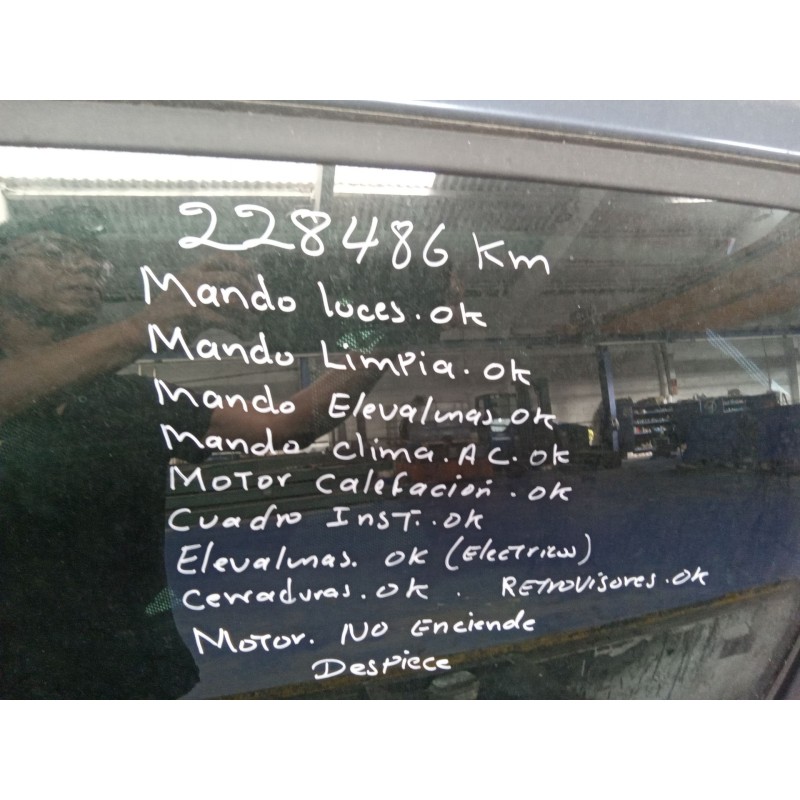 228486 Km
Mando luces. ok
Mando Limpia. ok
Mando Elevalunas. ok
Mando clima. A C. ok
Motor Calefacion. ok
Cuadro Inst. ok
Elevalunas. ok (Electricos)
Cerraduras. ok. Retrovisores. ok
Motor. No Enciende
Despiece